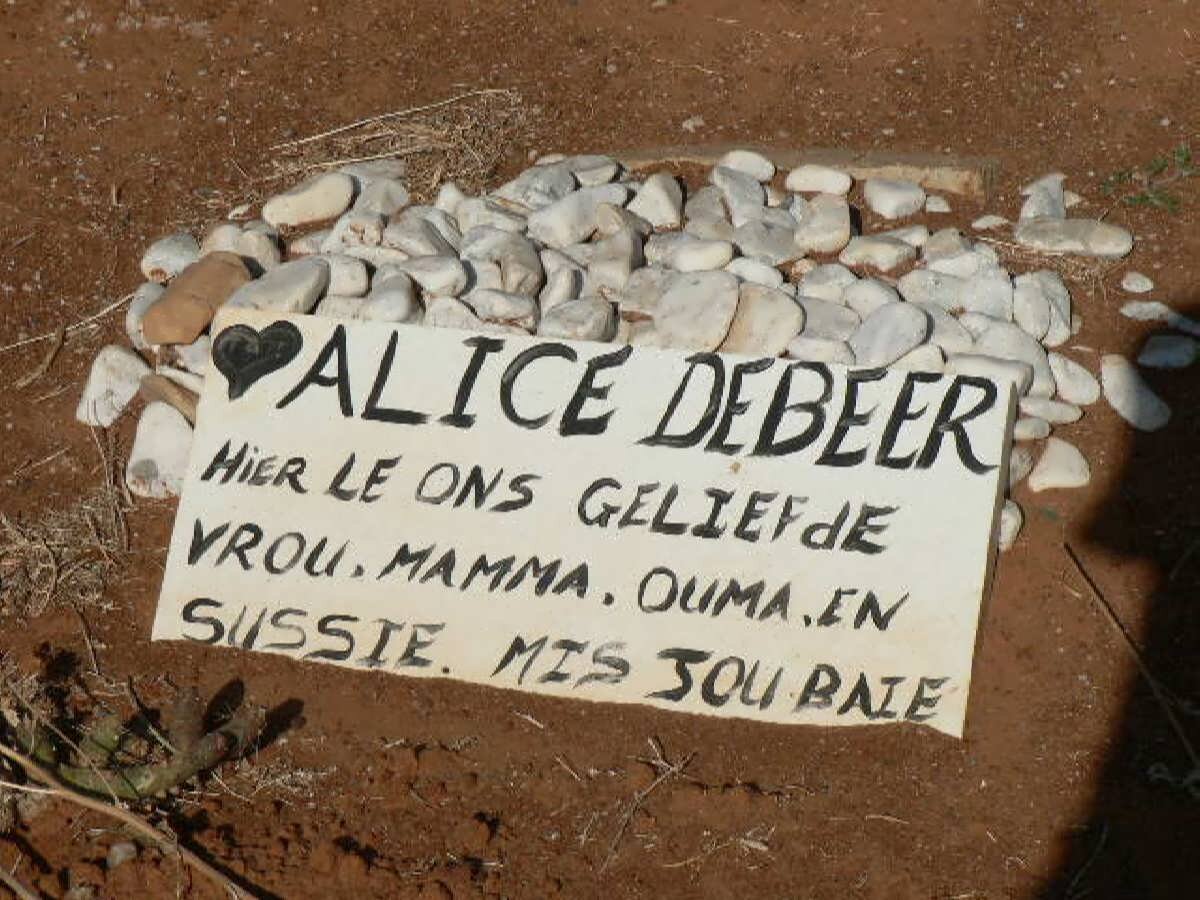 ALICE DEBEER
HiER LE ONS GELIEFdE
VROU. MAMMA. OUMA. EN
SUSSIE. MIS JOU BAIE